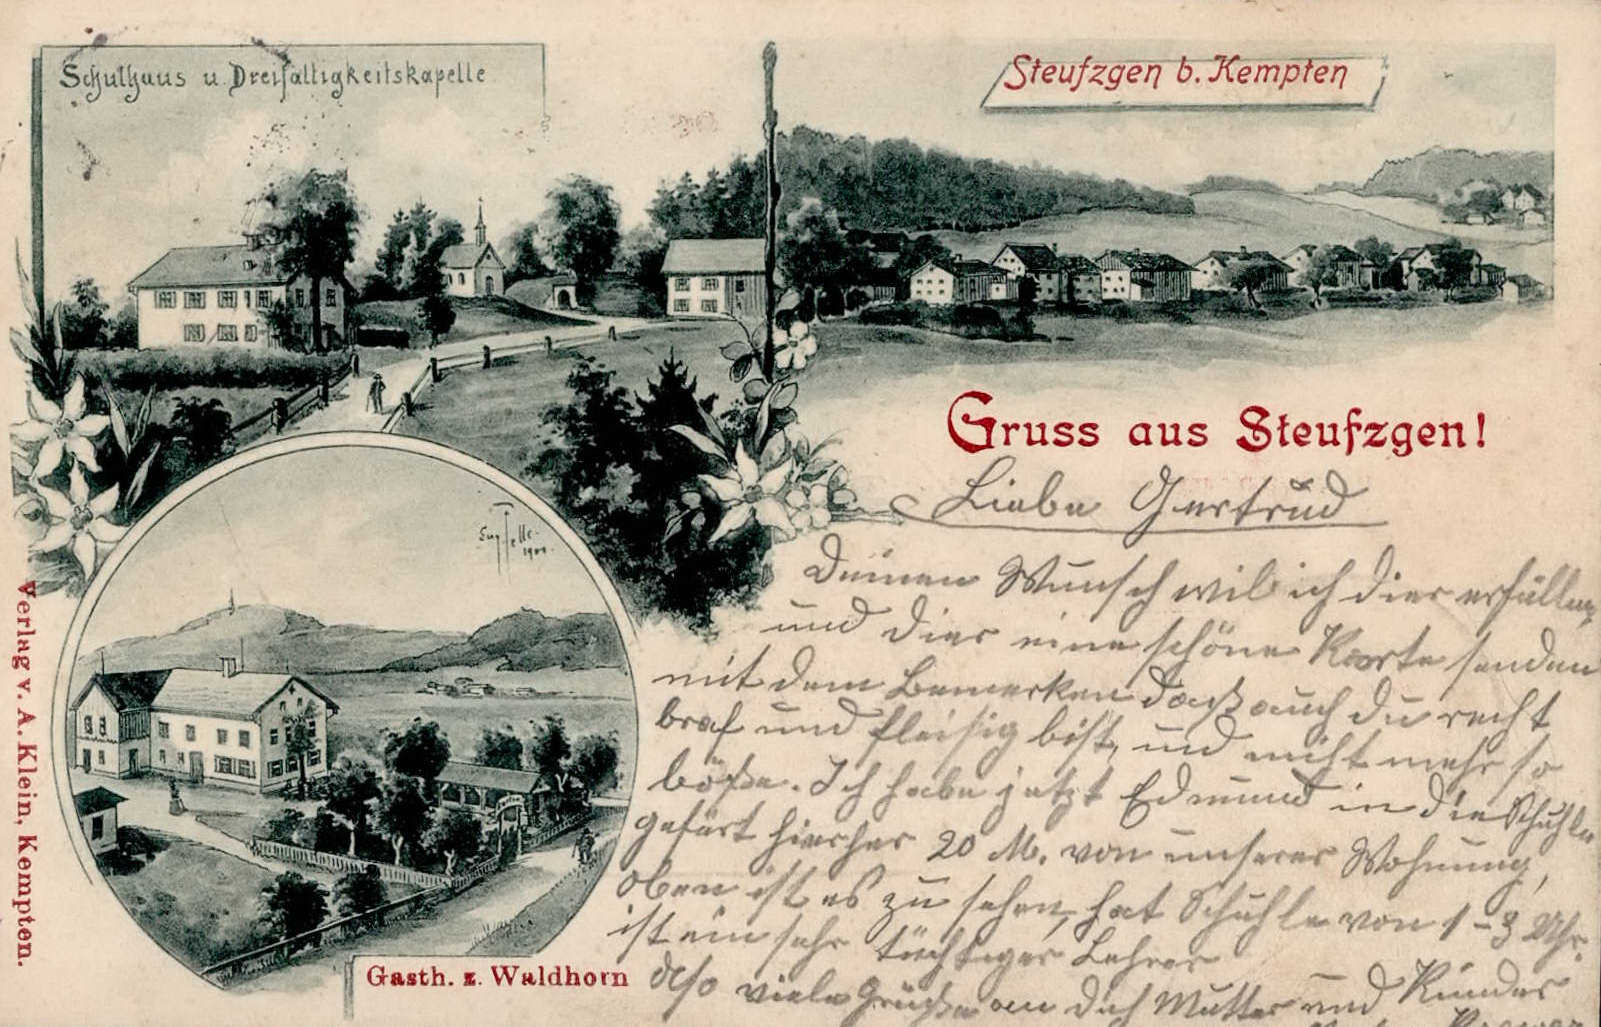 Schulhaus u. Dreifaltigkeitskapelle
Steufzgen b. Kempten
Gruss aus Steufzgen!
Liebe Gertrud
Deinen Wunsch wil ich dier erfüllen
und dier eine schöne Karte senden
mit dem Bemerken daß auch du recht
braf und fleisig bist, und nicht mehr so
böße. Ich habe jetzt Edmund in die Schuhle
gefürt hierher 20 M. von unserer Wohnung,
oben ist es zu sehen, hat Schuhle von 1-3 Uhr.
ist ein sehr tüchtiger Lehrer
also viele Grüße an dich Mutter und Kinder
1901.
Gasth. z. Waldhorn
Verlag v. A. Klein, Kempten.